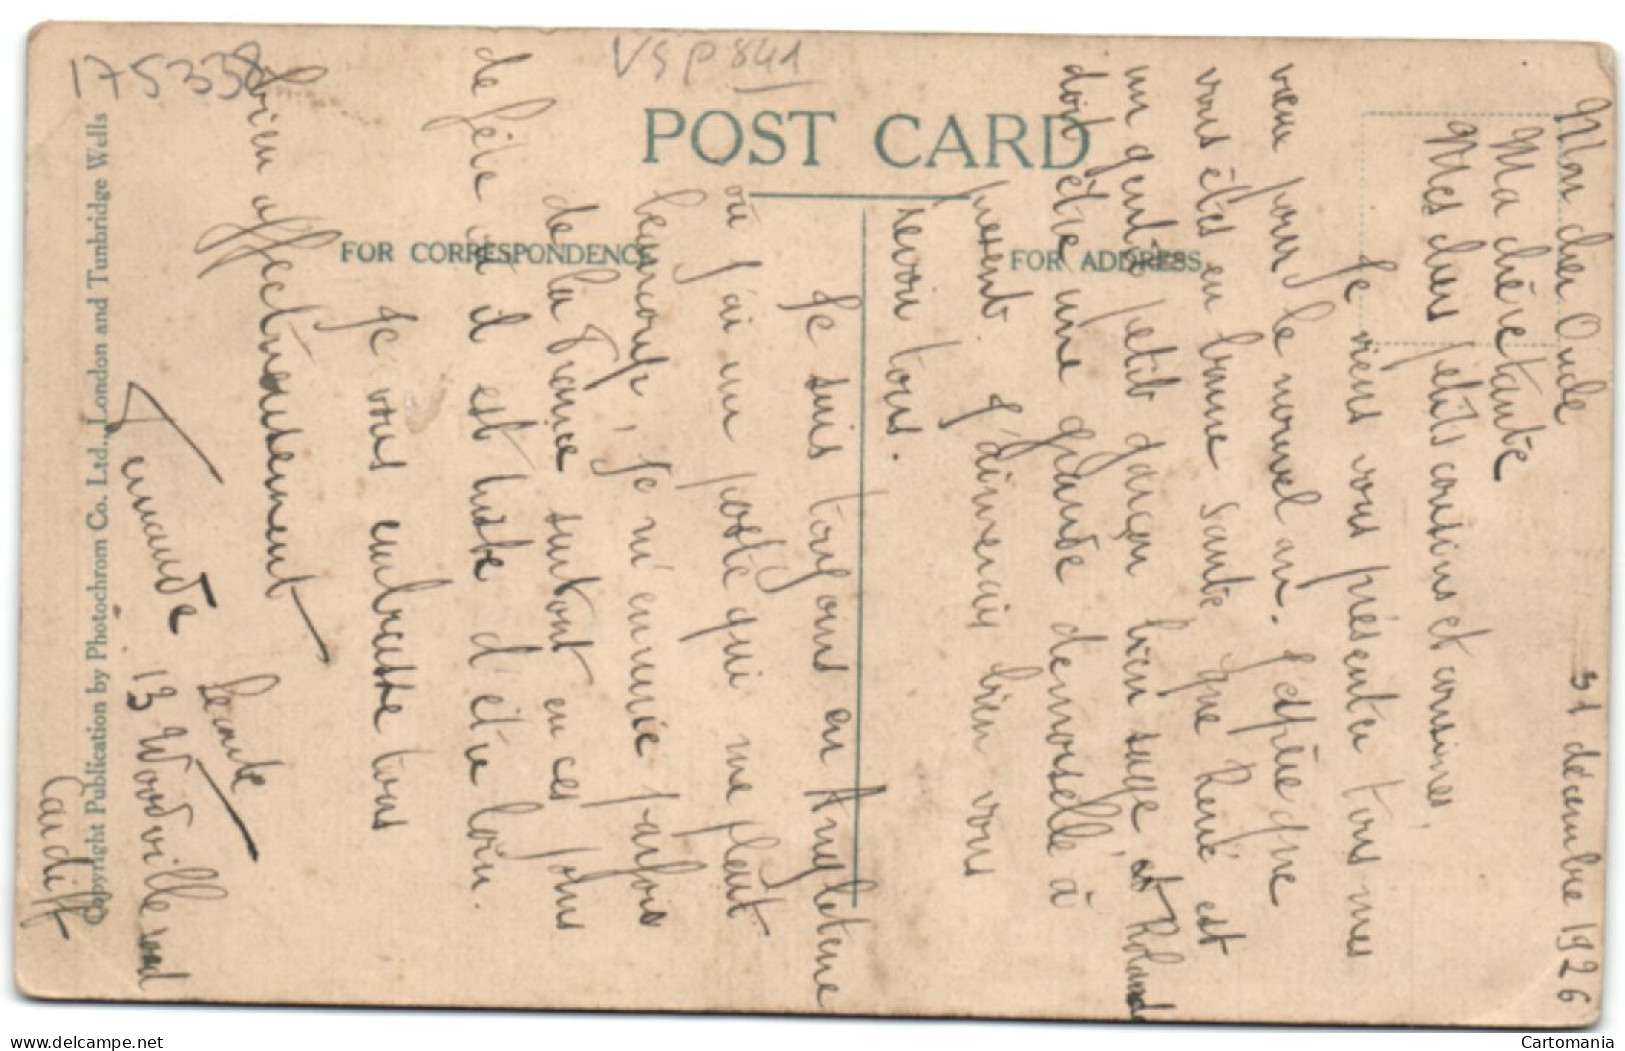 175338
VSP 841
POST CARD
FOR CORRESPONDENCE
FOR ADDRESS
Copyright Publication by Photochrom Co. Ltd., London and Tunbridge Wells
31 décembre 1926
Mon cher Oncle
Ma chère tante
Mes chers petits cousins et cousines,
Je viens vous présenter tous mes
vœux pour le nouvel an. J'espère que
vous êtes en bonne santé, que René est
un gentil petit garçon bien sage, et Rolande
doit être une grande demoiselle à
présent. J'aimerais bien vous
revoir tous.
Je suis toujours en Angleterre
où j'ai un poste qui me plaît
beaucoup, je m'ennuie parfois
de la France surtout en ces jours
de fête où il est triste d'être loin.
Je vous embrasse tous
bien affectueusement
Fernande
13 Woodville road
Cardiff
www.delcampe.net
Cartomania